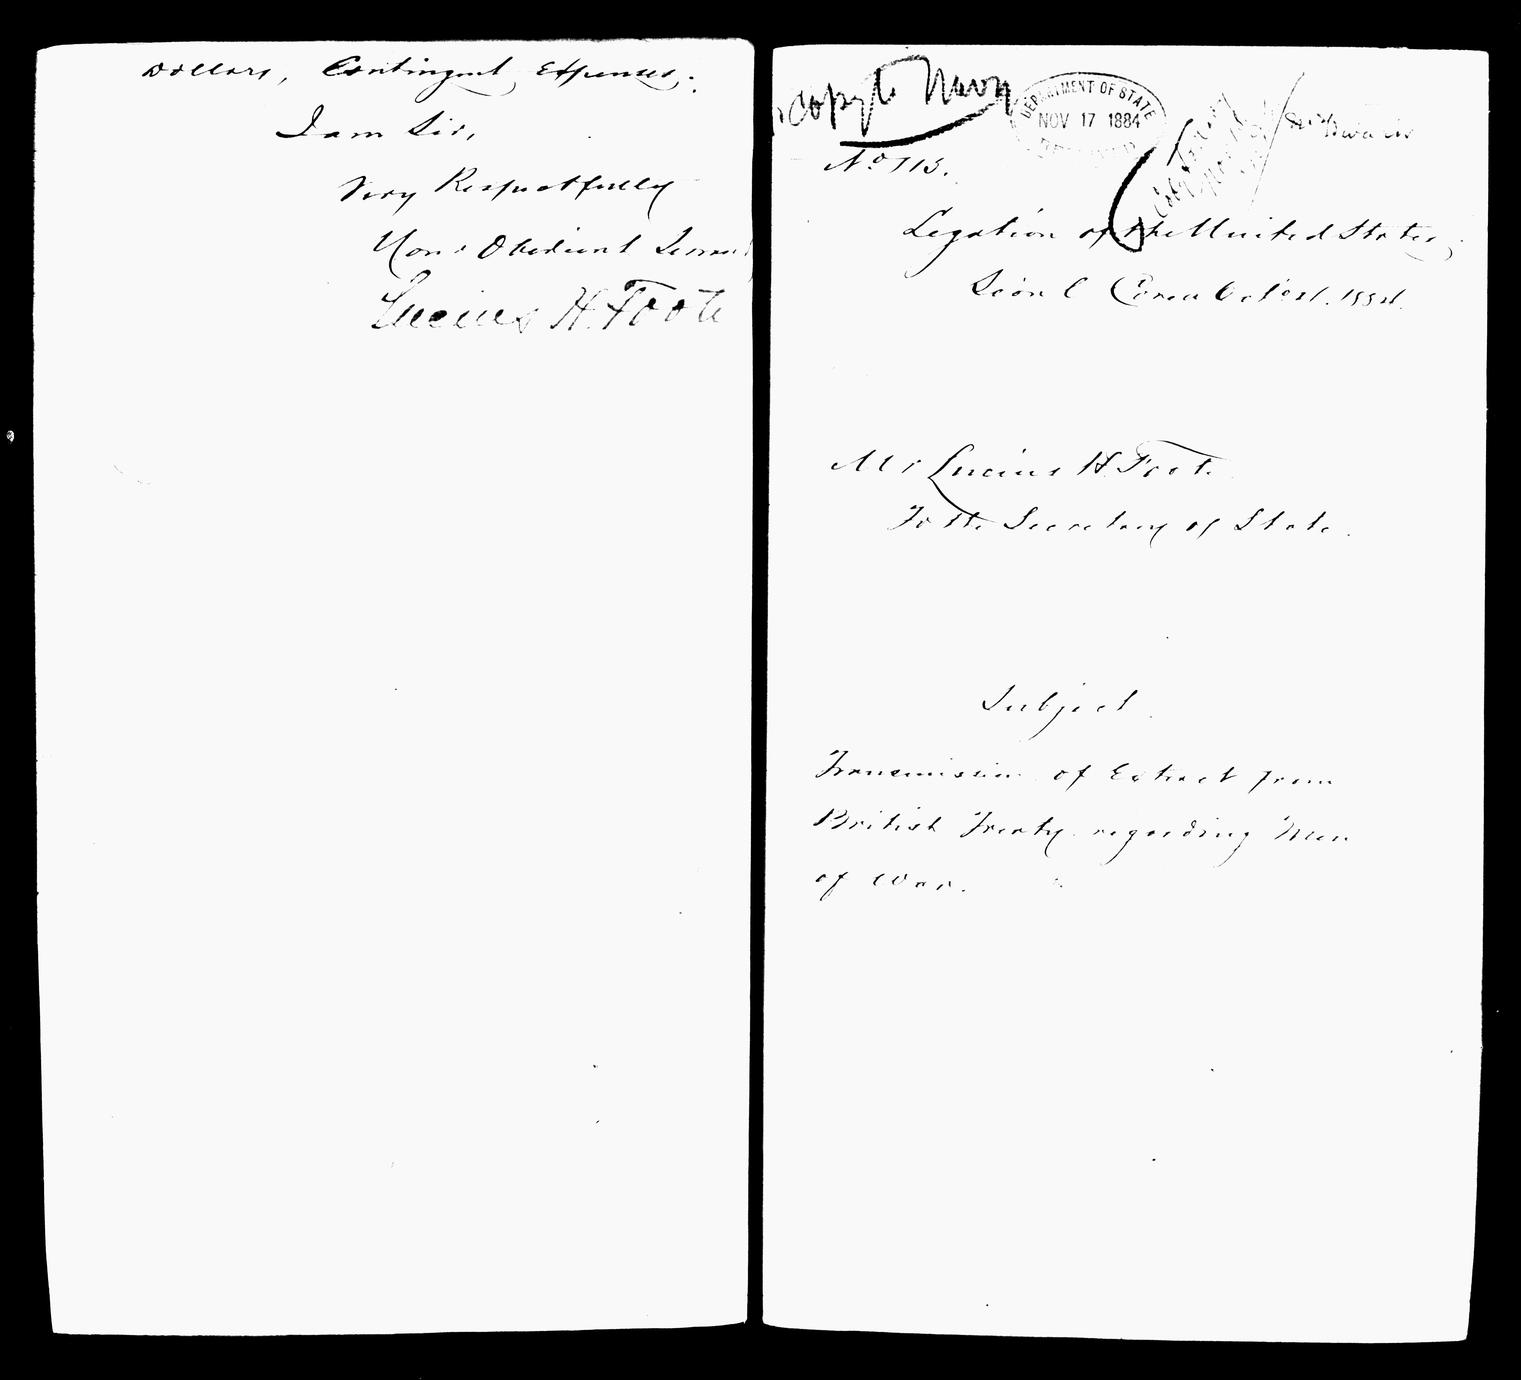 Dollars, Contingent Expenses.
I am Sir,
Very Respectfully
Your Obedient Servant
Lucius H. Foote
Copy to Navy
DEPARTMENT OF STATE
NOV 17 1884
No 113.
Legation of the United States,
Séoul Corea Oct 1884.
Mr Lucius H. Foote
To the Secretary of State.
Subject.
Transmission of Extract from
British Treaty regarding Men
of War.